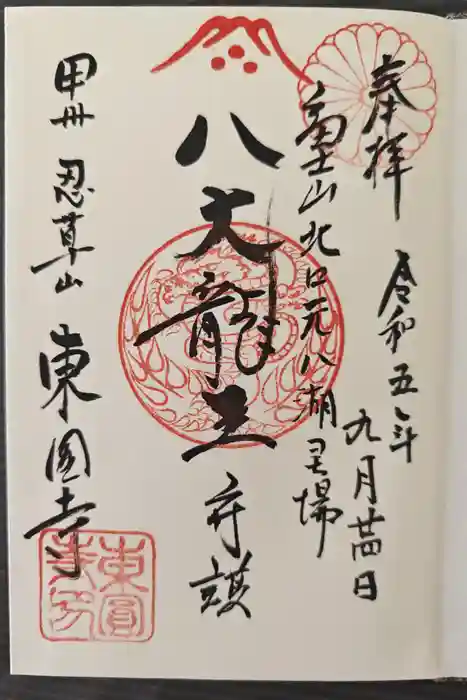 奉拝
令和五年
九月廿四日
富士山北口元八湖霊場
八大龍王 守護
甲州 忍草山 東圓寺
東圓寺